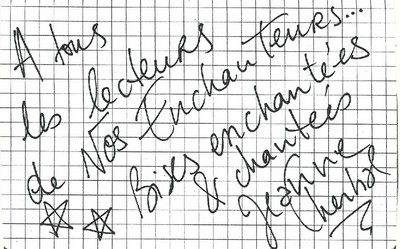 A tous
les lecteurs
de Nos Enchanteurs...
Bises enchantées
& chantées
Jeanne
Cherhal